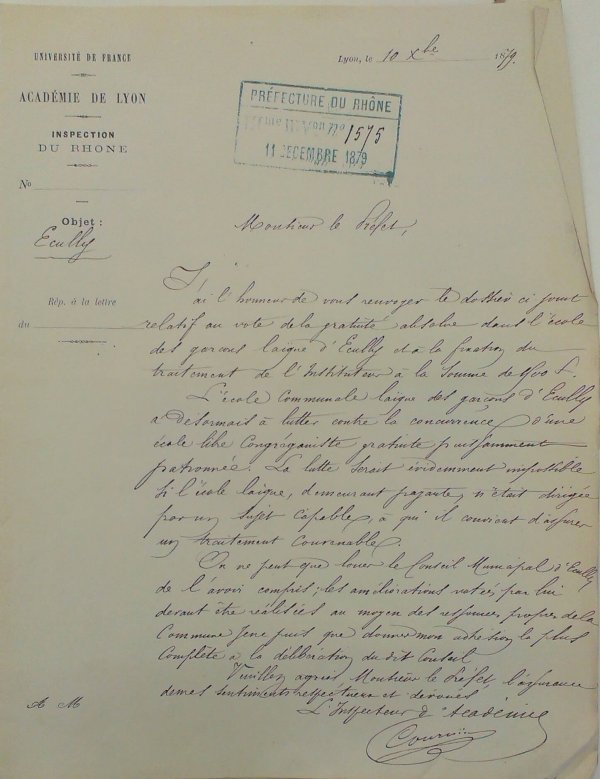 UNIVERSITÉ DE FRANCE
ACADÉMIE DE LYON
INSPECTION
DU RHONE
No
Objet :
Ecully
Rép. à la lettre
du
Lyon, le 10 Xbe 1879.
PRÉFECTURE DU RHÔNE
1575
11 DECEMBRE 1879
Monsieur le Préfet,
J'ai l'honneur de vous renvoyer le dossier ci joint
relatif au vote de la gratuité absolue dans l'école
des garçons laïque d'Ecully et à la fixation du
traitement de l'Instituteur à la somme de F.
L'école Communale laïque des garçons d'Ecully
a désormais à lutter contre la concurrence d'une
école libre Congréganiste gratuite puissamment
patronnée. La lutte serait évidemment impossible
si l'école laïque, demeurant payante, n'était dirigée
par un sujet capable, à qui il convient d'assurer
un traitement convenable.
On ne peut que louer le Conseil Municipal d'Ecully
de l'avoir compris ; les améliorations votées par lui
devant être réalisées au moyen des ressources propres de la
Commune je ne puis que donner mon adhésion la plus
complète à la délibération du dit Conseil
Veuillez agréer Monsieur le Préfet l'assurance
de mes sentiments respectueux et dévoués
L'Inspecteur d'Académie
A M